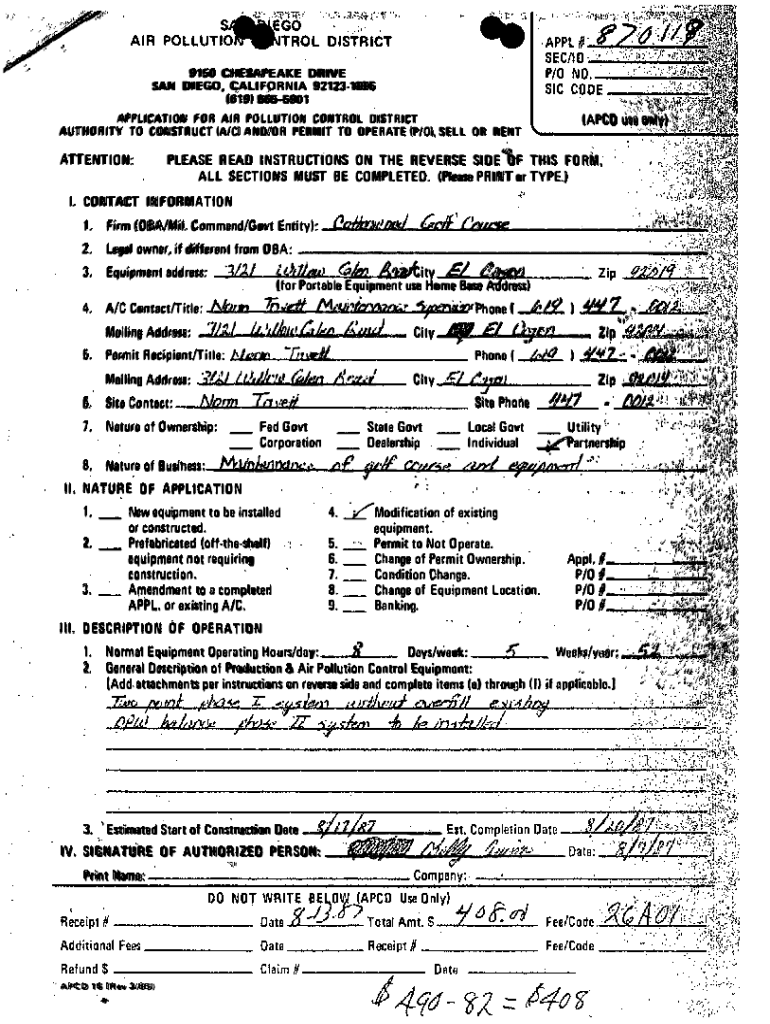 SAN DIEGO
AIR POLLUTION CONTROL DISTRICT
9150 CHESAPEAKE DRIVE
SAN DIEGO, CALIFORNIA 92123-1096
(619) 565-5901
APPL #: 870118
SEC/ID
P/O NO.
SIC CODE
(APCD use only)
APPLICATION FOR AIR POLLUTION CONTROL DISTRICT
AUTHORITY TO CONSTRUCT (A/C) AND/OR PERMIT TO OPERATE (P/O), SELL OR RENT
ATTENTION: PLEASE READ INSTRUCTIONS ON THE REVERSE SIDE OF THIS FORM.
ALL SECTIONS MUST BE COMPLETED. (Please PRINT or TYPE.)
I. CONTACT INFORMATION
1. Firm (DBA/Mil. Command/Govt Entity): Cottonwood Golf Course
2. Legal owner, if different from DBA:
3. Equipment address: 3121 Willow Glen Road City El Cajon Zip 92019
(for Portable Equipment use Home Base Address)
4. A/C Contact/Title: Norm Maintennance Phone ( 619 ) 447 - 0012
Mailing Address: 3121 Willow Glen Road City El Cajon Zip
5. Permit Recipient/Title: Norm Phone ( 619 ) 447 - 0012
Mailing Address: 3121 Willow Glen Road City El Cajon Zip 92019
6. Site Contact: Norm Site Phone 447 - 0012
7. Nature of Ownership: Fed Govt State Govt Local Govt Utility
Corporation Dealership Individual ✓ Partnership
8. Nature of Business: Maintennance of golf course and equipment
II. NATURE OF APPLICATION
1. New equipment to be installed
or constructed.
2. Prefabricated (off-the-shelf)
equipment not requiring
construction.
3. Amendment to a completed
APPL. or existing A/C.
4. ✓ Modification of existing
equipment.
5. Permit to Not Operate.
6. Change of Permit Ownership. Appl. #
7. Condition Change. P/O #
8. Change of Equipment Location. P/O #
9. Banking.
III. DESCRIPTION OF OPERATION
1. Normal Equipment Operating Hours/day: 8 Days/week: 5 Weeks/year: 52
2. General Description of Production & Air Pollution Control Equipment:
[Add attachments per instructions on reverse side and complete items (a) through (l) if applicable.]
Two point phase I system without overfill existing
OPW balance phase II system to be installed
3. Estimated Start of Construction Date 8/17/87 Est. Completion Date 8/20/87
IV. SIGNATURE OF AUTHORIZED PERSON: Date:
Print Name: Company:
DO NOT WRITE BELOW (APCD Use Only)
Receipt # Date 8-13-87 Total Amt. $ 408.00 Fee/Code 26A01
Additional Fees Date Receipt # Fee/Code
Refund $ Claim # Date
APCD 16 (Rev 3/86)
$ 490 - 82 = $408